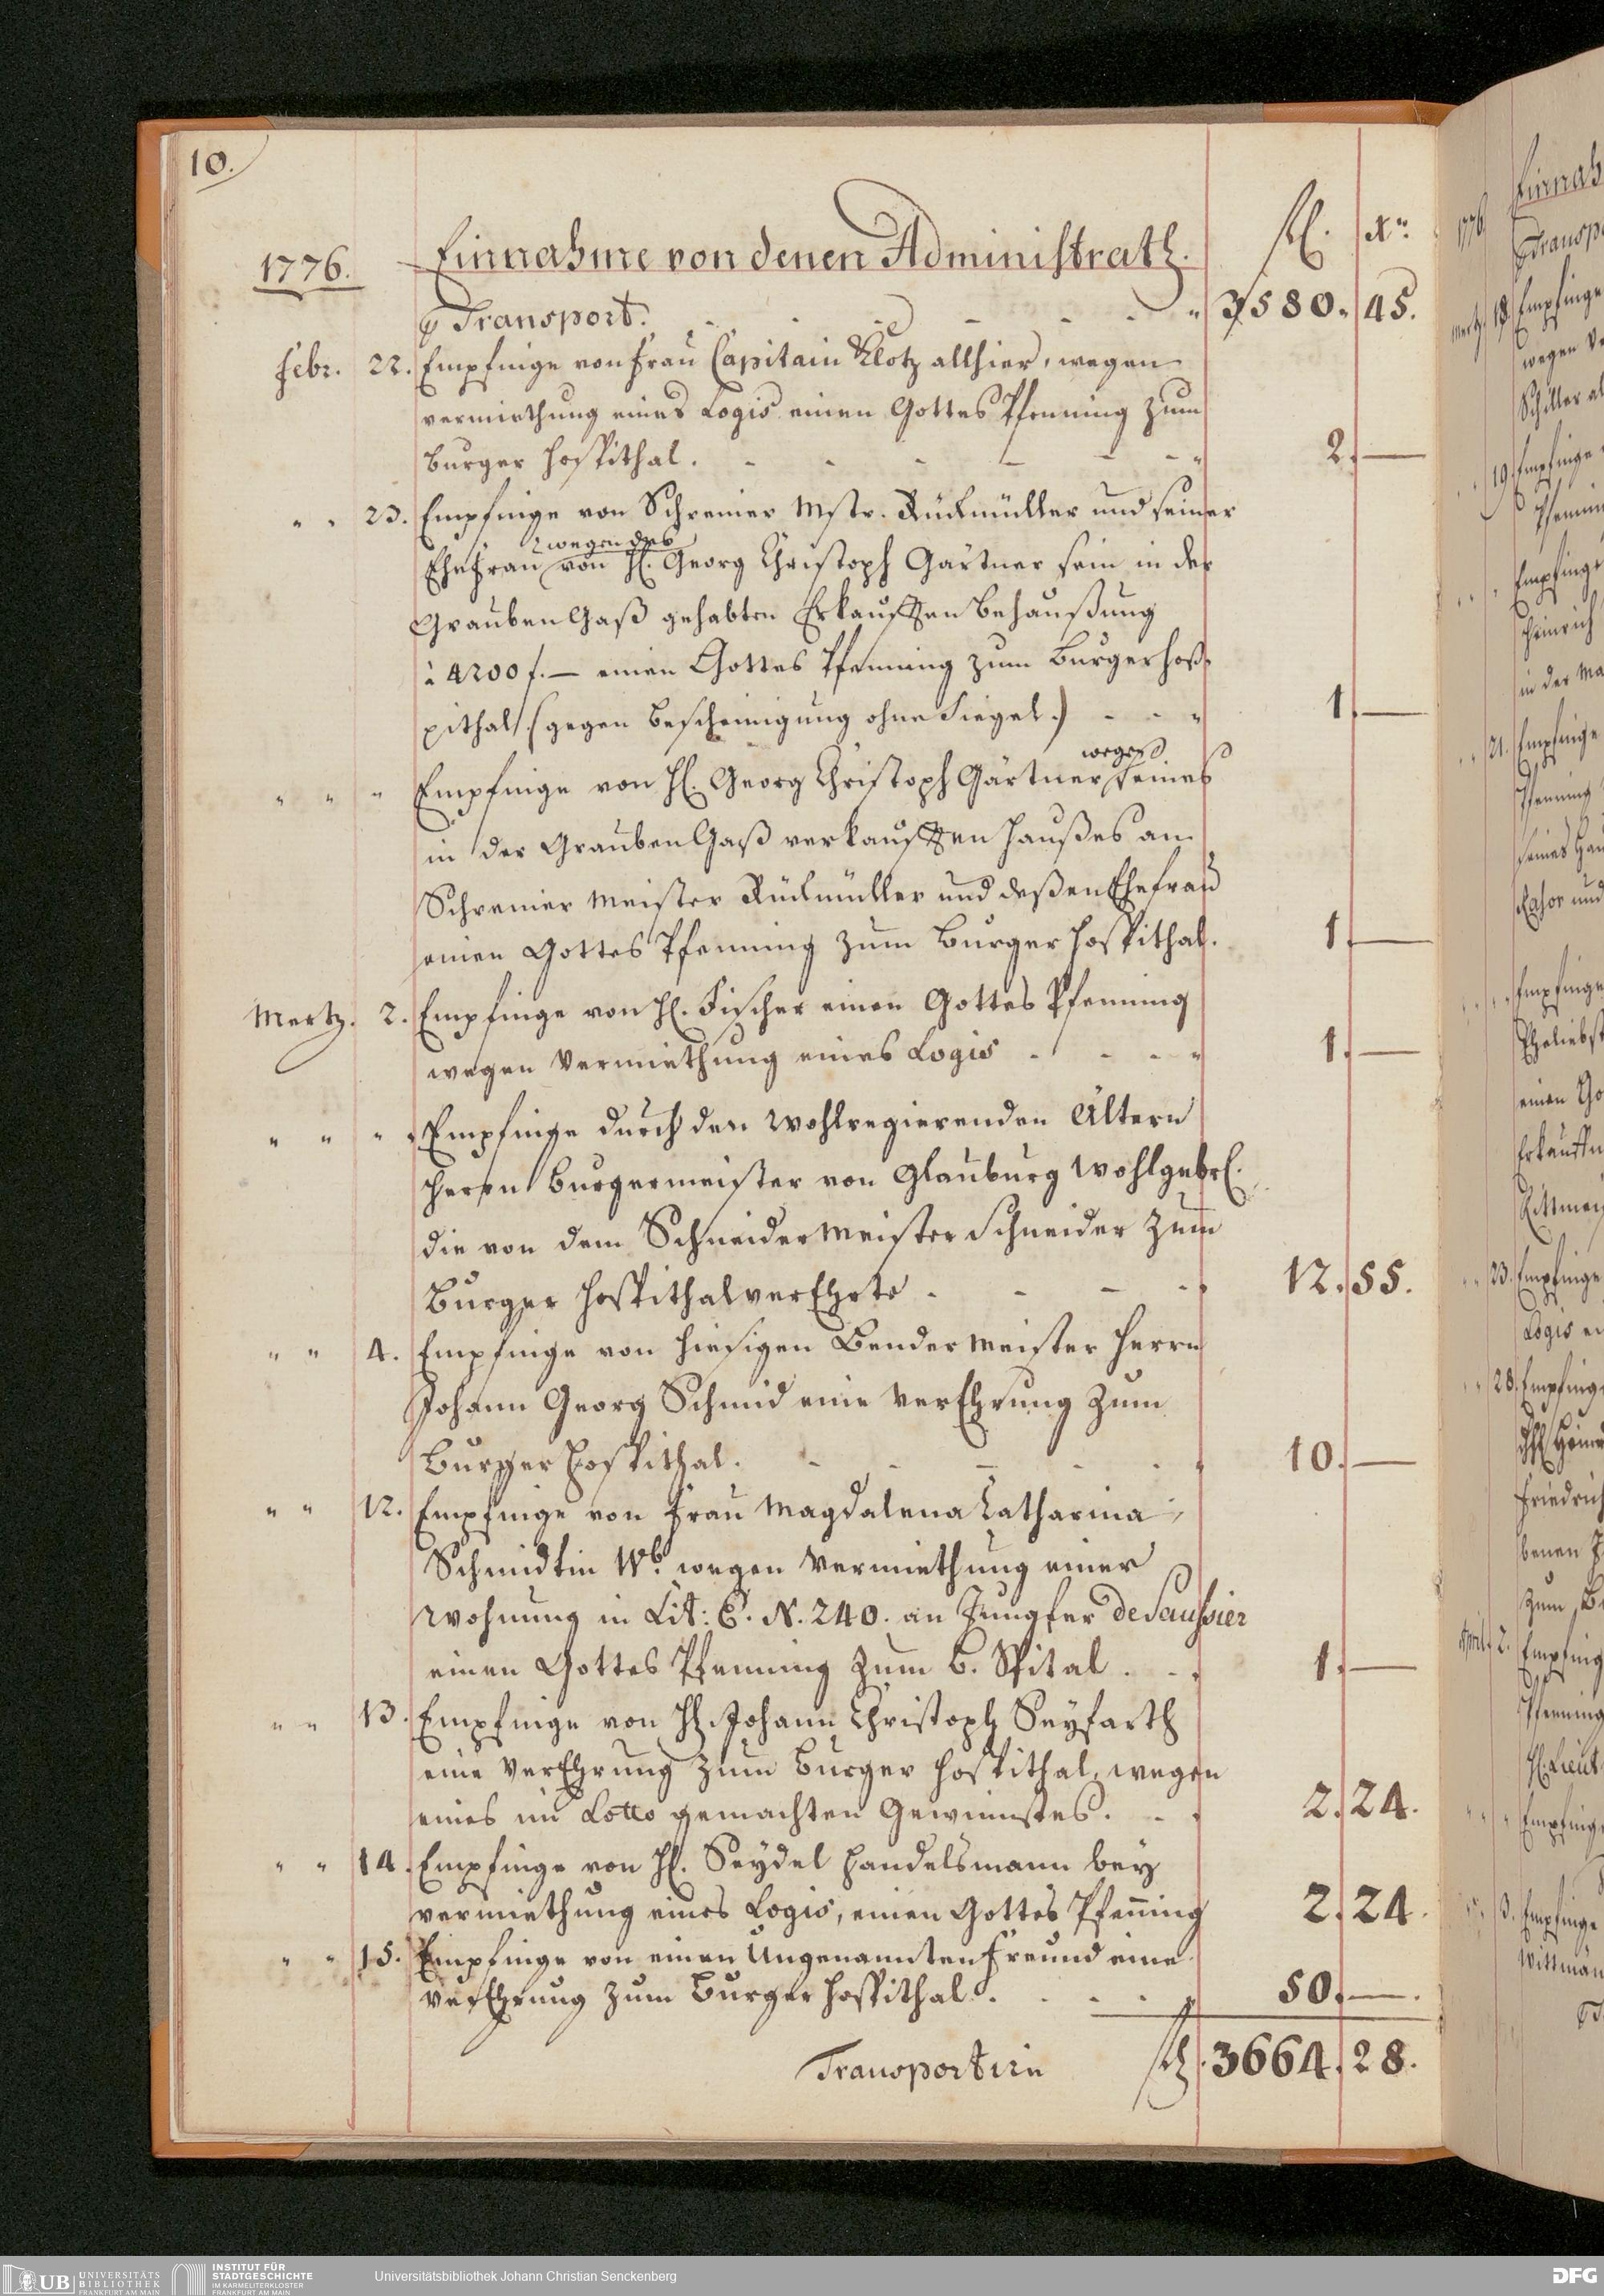 10.
1776. Einnahme von denen Administrath. fl. Xr.
Transport. " 3580. 45.
Febr. 22. Empfinge von Frau Capitain Klotz allhier, wegen
vermiethung eines Logis einen Gottes Pfenning zum
Burger Hospithal. 2. —
" " 23. Empfinge von Schreiner Mstr. Rückmüller und seiner
wegen des
Ehefrau von H. Georg Christoph Gärtner sein in der
Grauben Gaß gehabten Erkaufften Behaußung
à 4200 f. — einen Gottes Pfenning zum Burgerhoß-
pithal. (gegen Bescheinigung ohne Siegel.) 1. —
wegen
" " " Empfinge von H. Georg Christoph Gärtner seines
in der Grauben Gaß verkaufften Haußes an
Schreiner Meister Rückmüller und deßen Ehefrau
einen Gottes Pfenning zum Burger Hospithal. 1. —
Mertz. 2. Empfinge von H. Fischer einen Gottes Pfenning
wegen Vermiethung eines Logis 1. —
" " " Empfinge durch den Wohlregierenden Ältern
Herrn Burgermeister von Glauburg Wohlgebrl.
die von dem Schneider Meister Schneider zum
Burger Hospithal verEhrte 12. 55.
" " 4. Empfinge von hiesigen Bender Meister Herrn
Johann Georg Schmid eine VerEhrung zum
Burger Hospithal. 10. —
" " 12. Empfinge von Frau Magdalena Catharina
Schmidtin Wb. wegen Vermiethung einer
Wohnung in Lit: E. N. 240. an Jungfer de Saussier
einen Gottes Pfenning zum B. Spital. 1. —
" " 13. Empfinge von H. Johann Christoph Seyfarth
eine VerEhrung zum Burger Hospithal, wegen
eines im Lotto gemachten Gewinnstes. 2. 24.
" " 14. Empfinge von H. Seydel Handelsmann bey
vermiethung eines Logis, einen Gottes Pfenning 2. 24.
" " 15. Empfinge von einen Ungenannten Freund eine
verEhrung zum Burger Hospithal. 50. —.
Transportirn fl. 3664. 28.
UB UNIVERSITÄTS BIBLIOTHEK FRANKFURT AM MAIN
INSTITUT FÜR STADTGESCHICHTE IM KARMELITERKLOSTER FRANKFURT AM MAIN
Universitätsbibliothek Johann Christian Senckenberg
DFG